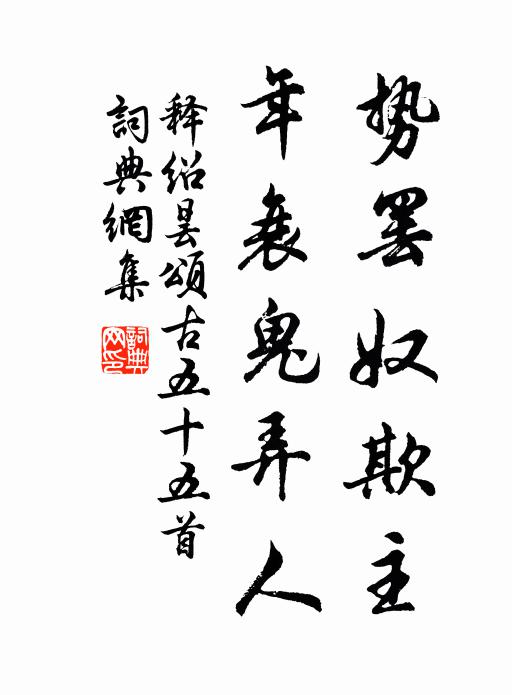 势罢奴欺主
年衰鬼弄人
释绍昙颂古五十五首
词典网集
詞典網印